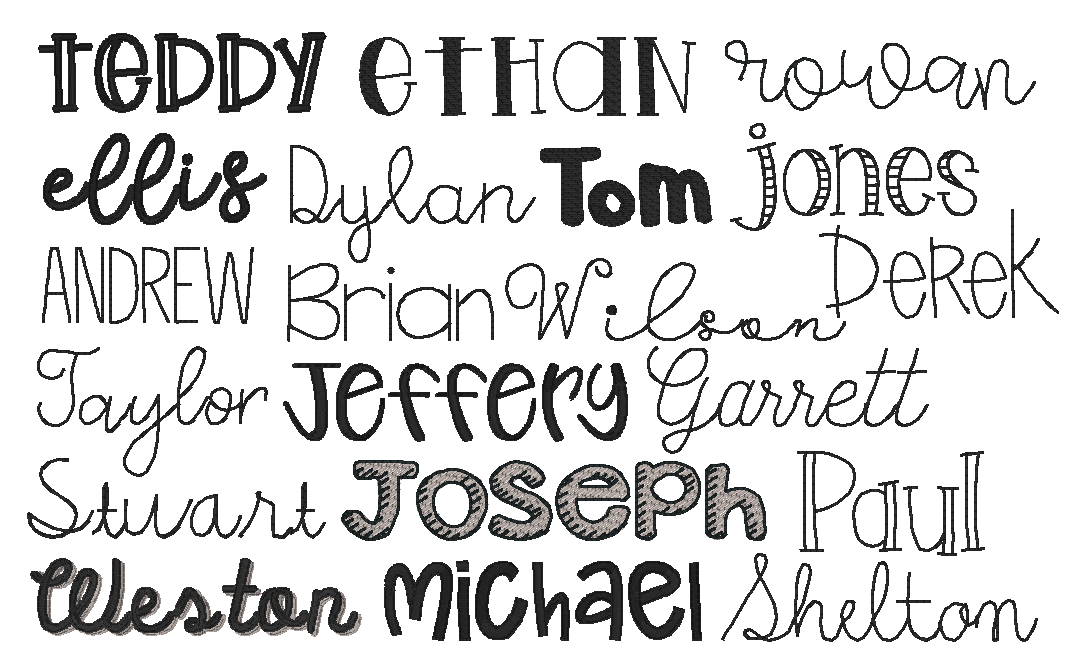 TeDDY eTHan rowan
ellis Dylan Tom jones
ANDREW Brian Wilson DeReK
Taylor Jeffery Garrett
Stuart Joseph Paul
Weston Michael Shelton